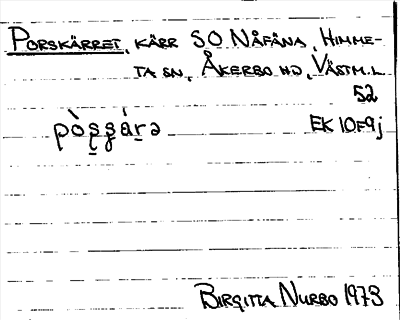 PORSKÄRRET, KÄRR SO NÅFÄNA, HIMME-
TA SN, ÅKERBO HD, VÄSTM.L.
52
pòs̱s̱áṟə EK 10F9j
BIRGITTA NURBO 1973